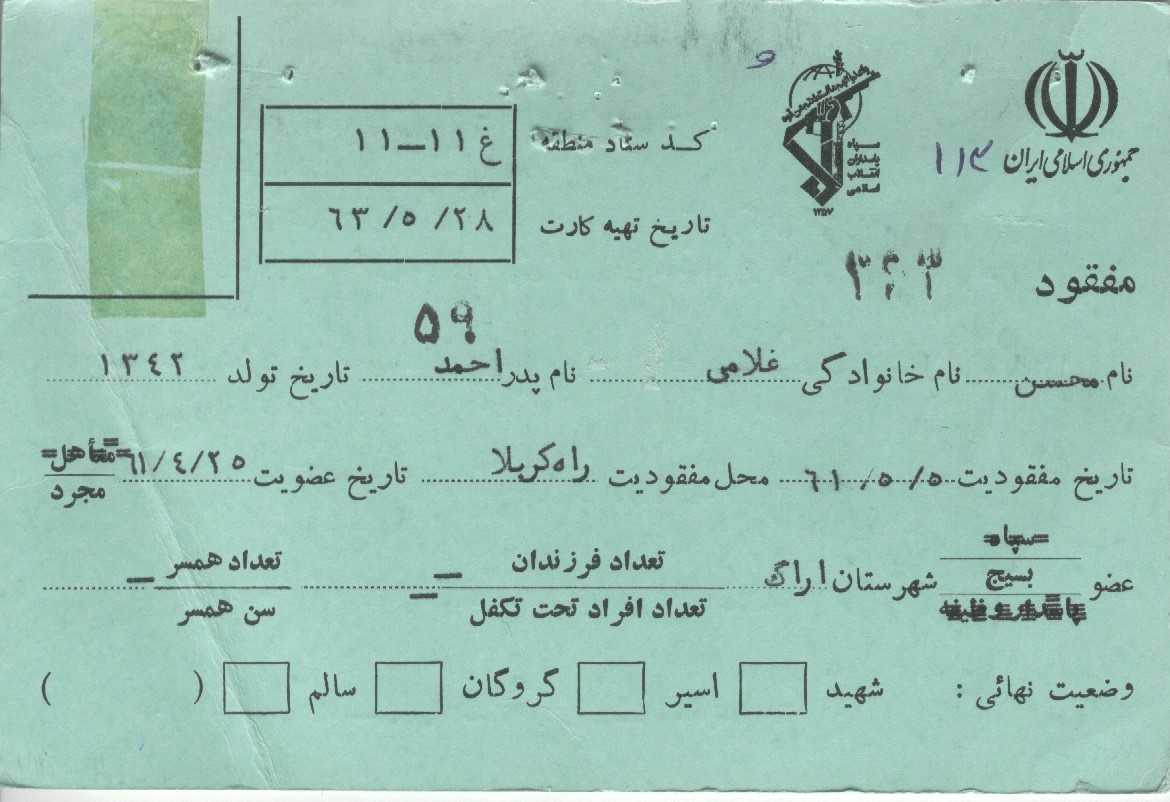 جمهوری اسلامی ایران
۱۱۳
سپاه پاسداران انقلاب اسلامی
۱۳۵۷
و
کد ستاد منطقه غ ۱۱–۱۱
تاریخ تهیه کارت ۶۳/۵/۲۸
مفقود
۵۹
نام محسن نام خانوادگی غلامی نام پدر احمد تاریخ تولد ۱۳۴۲
تاریخ مفقودیت ۶۱/۵/۵ محل مفقودیت راه کربلا تاریخ عضویت ۶۱/۴/۲۵ متأهل مجرد
عضو سپاه بسیج شهرستان اراک تعداد فرزندان – تعداد همسر –
تعداد افراد تحت تکفل – سن همسر
وضعیت نهائی : شهید اسیر گروگان سالم ( )